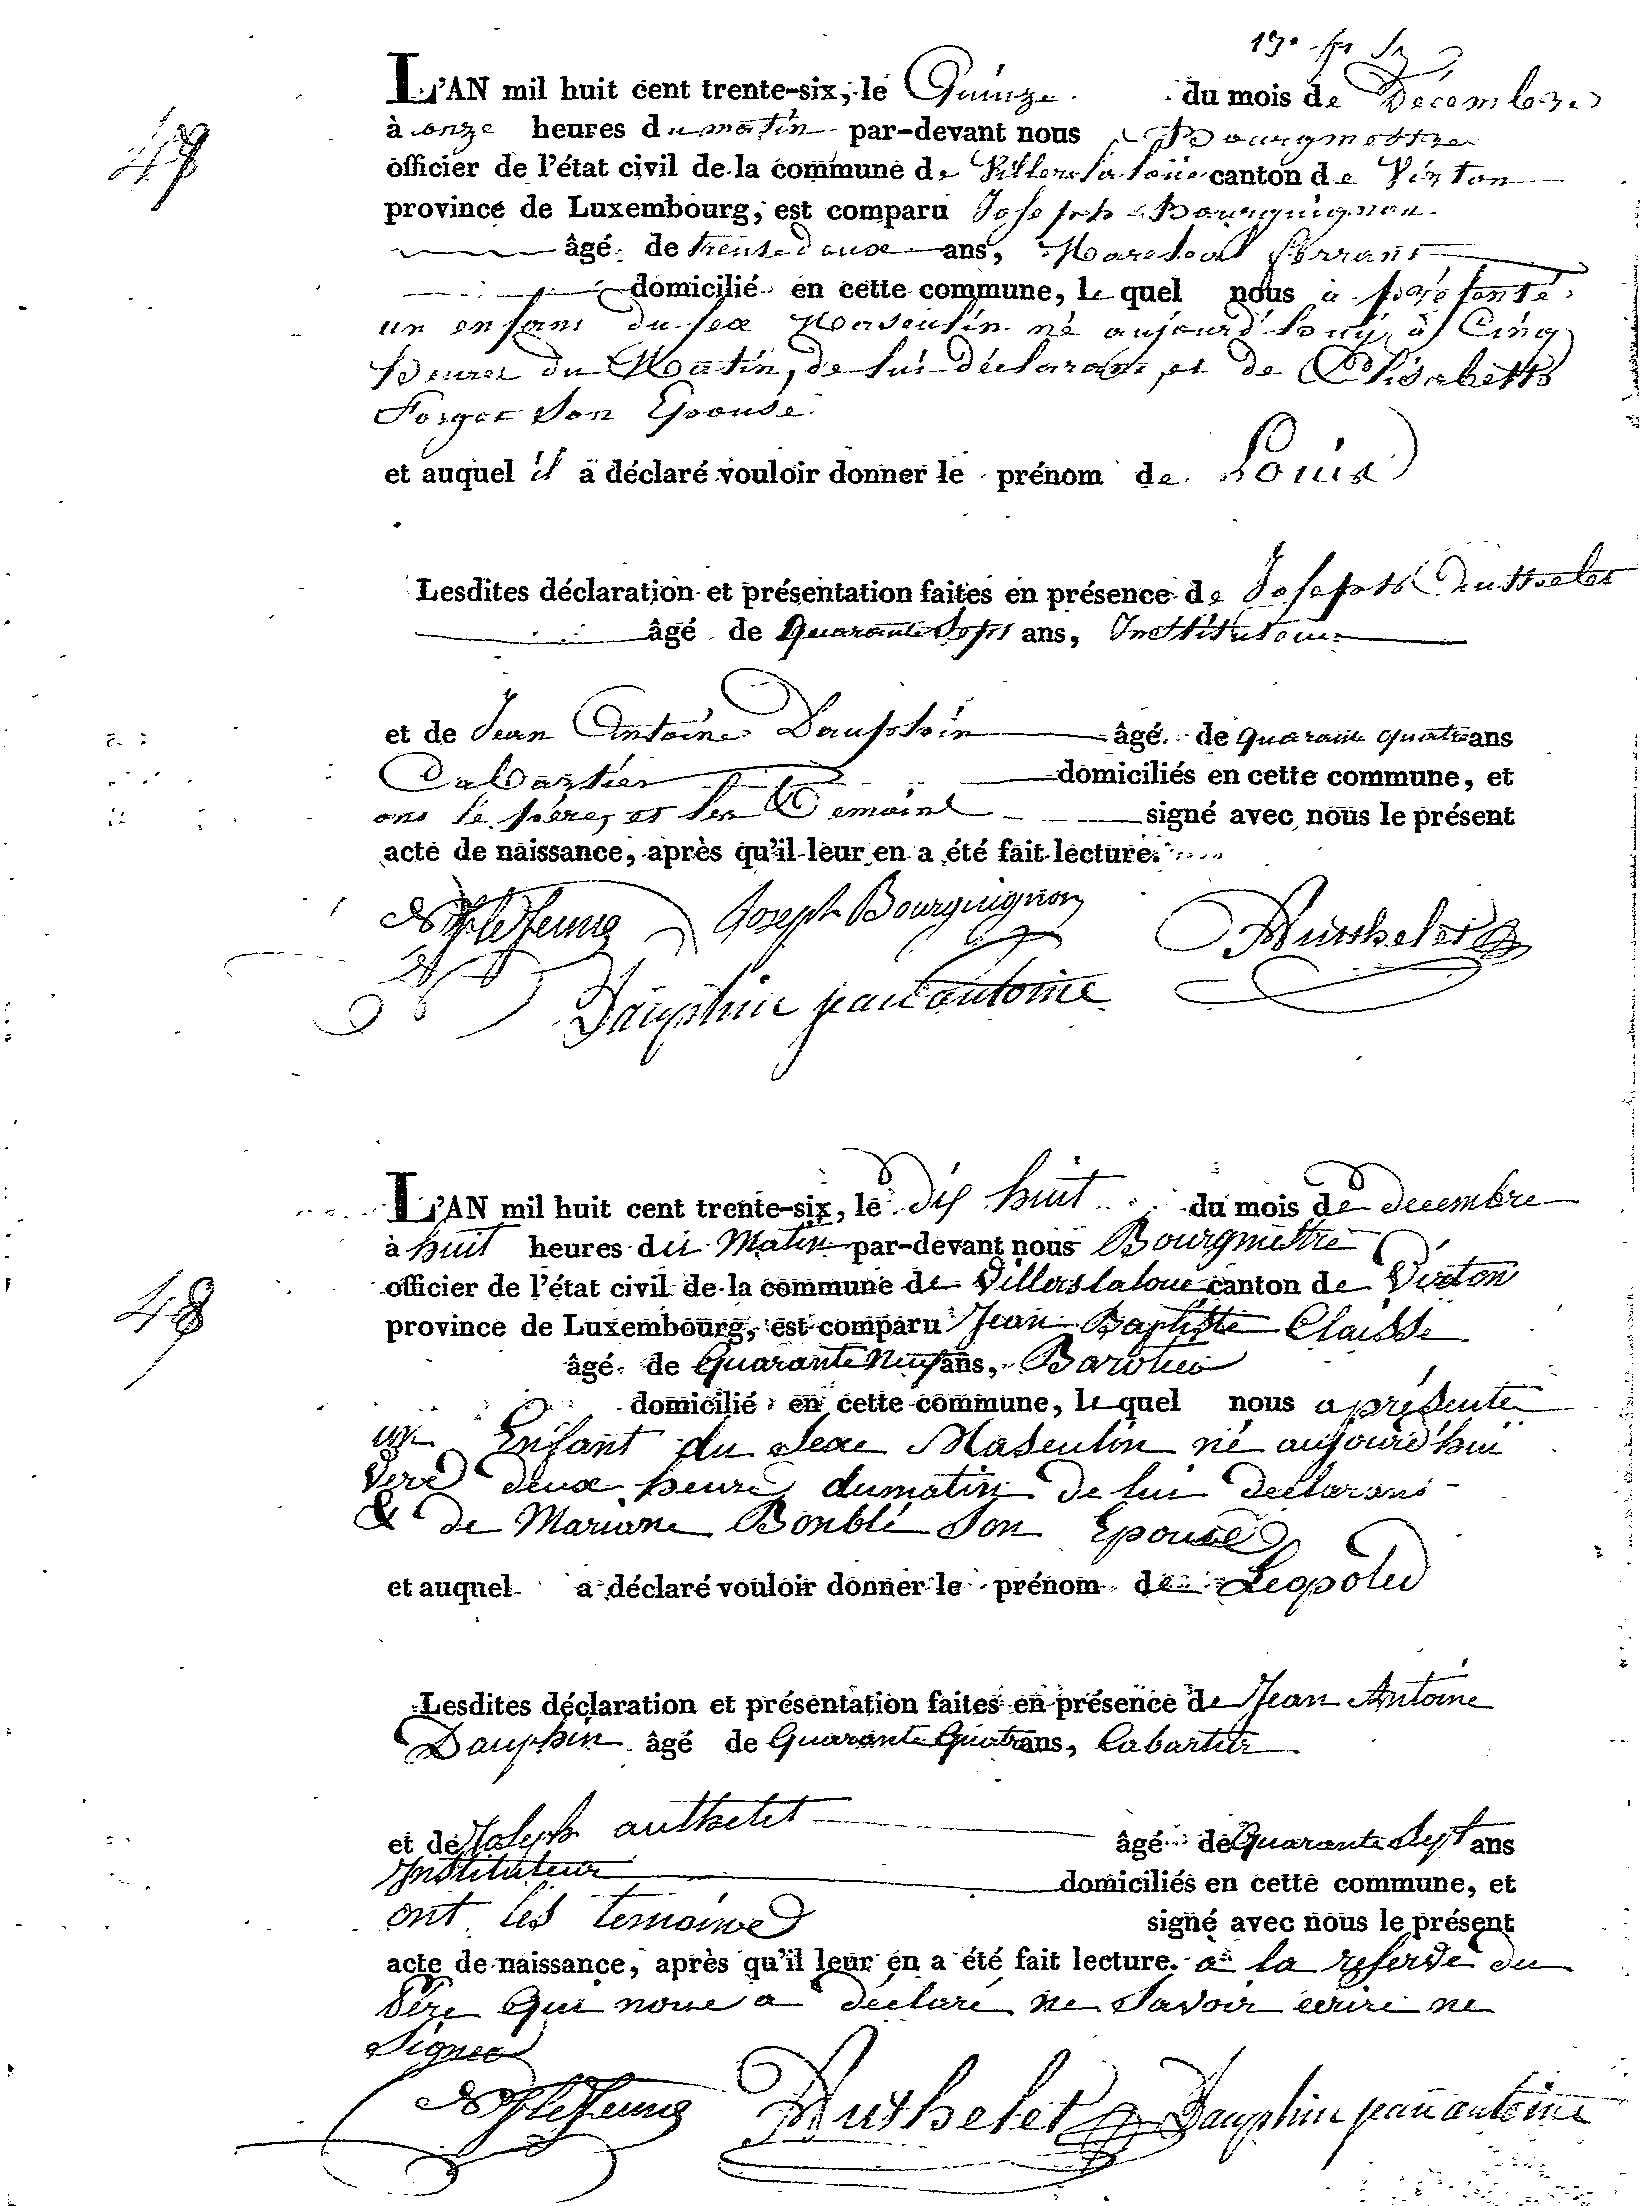 L'AN mil huit cent trente-six, le Quinze du mois de Décembre
à onze heures du matin par-devant nous Bourgmettre
officier de l'état civil de la commune de Villerslaloue canton de Virton
province de Luxembourg, est comparu Joseph Bourguignon
âgé de trente deux ans, Marechal ferrant
domicilié en cette commune, le quel nous a présenté
un enfant du sex Masculin né aujourd'huy à Cinq
heures du Matin, de lui déclarant, et de Elisabeth
Forget Son Epouse
et auquel il a déclaré vouloir donner le prénom de Louis
Lesdites déclaration et présentation faites en présence de Joseph Authelet
âgé de Quarante Sept ans, Instituteur
et de Jean Antoine Dauphin âgé de quarante quatre ans
Cabartier domiciliés en cette commune, et
ont le père, et les Temoins signé avec nous le présent
acte de naissance, après qu'il leur en a été fait lecture.
Joseph Bourguignon Authelet
Dauphin jean antoine
L'AN mil huit cent trente-six, le dix huit du mois de decembre
à huit heures du Matin par-devant nous Bourgmettre
48
officier de l'état civil de la commune de Villerslaloue canton de Virton
province de Luxembourg, est comparu Jean Baptiste Claisse
âgé de Quarante Neuf ans,
domicilié en cette commune, le quel nous a présenté
un Enfant du Sexe Masculin né aujourd'hui
vers deux heures du matin de lui declarant
& de Mariane Bonblé Son Epouse
et auquel a déclaré vouloir donner le prénom de Leopold
Lesdites déclaration et présentation faites en présence de Jean Antoine
Dauphin âgé de Quarante Quatre ans, Cabartier
et de Joseph authelet âgé de Quarante Sept ans
Instituteur domiciliés en cette commune, et
ont les temoins signé avec nous le présent
acte de naissance, après qu'il leur en a été fait lecture. à la reserve du
Père Qui nous a déclaré ne Savoir ecrire ne
Signer
Authelet Dauphin jean antoine